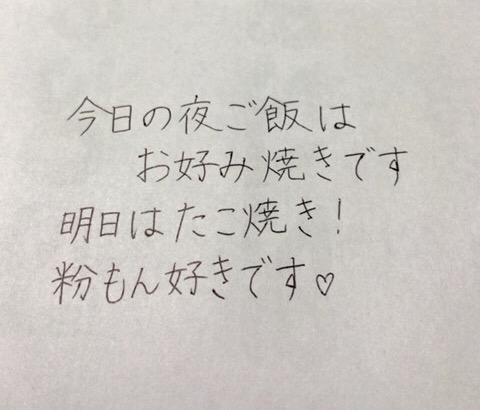 今日の夜ご飯は
お好み焼きです
明日はたこ焼き!
粉もん好きです♡